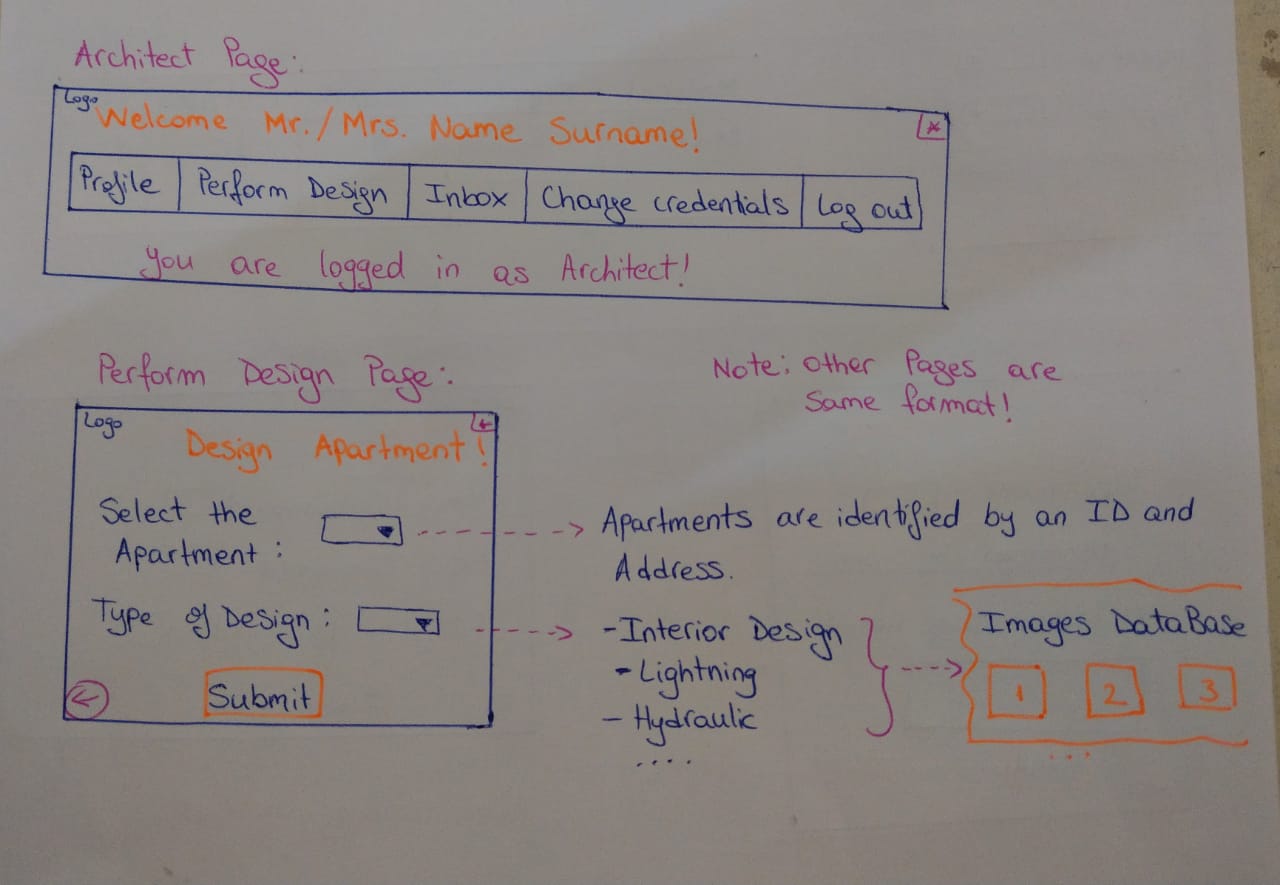 Architect Page:
Logo
Welcome Mr./Mrs. Name Surname!
Profile
Perform Design
Inbox
Change credentials
Log out
You are logged in as Architect!
Perform Design Page:
Note: Other Pages are
Same format!
Logo
Design Apartment!
Select the
Apartment:
Apartments are identified by an ID and
Address.
Type of Design:
-Interior Design
-Lightning
- Hydraulic
....
Images DataBase
1
2
3
...
Submit